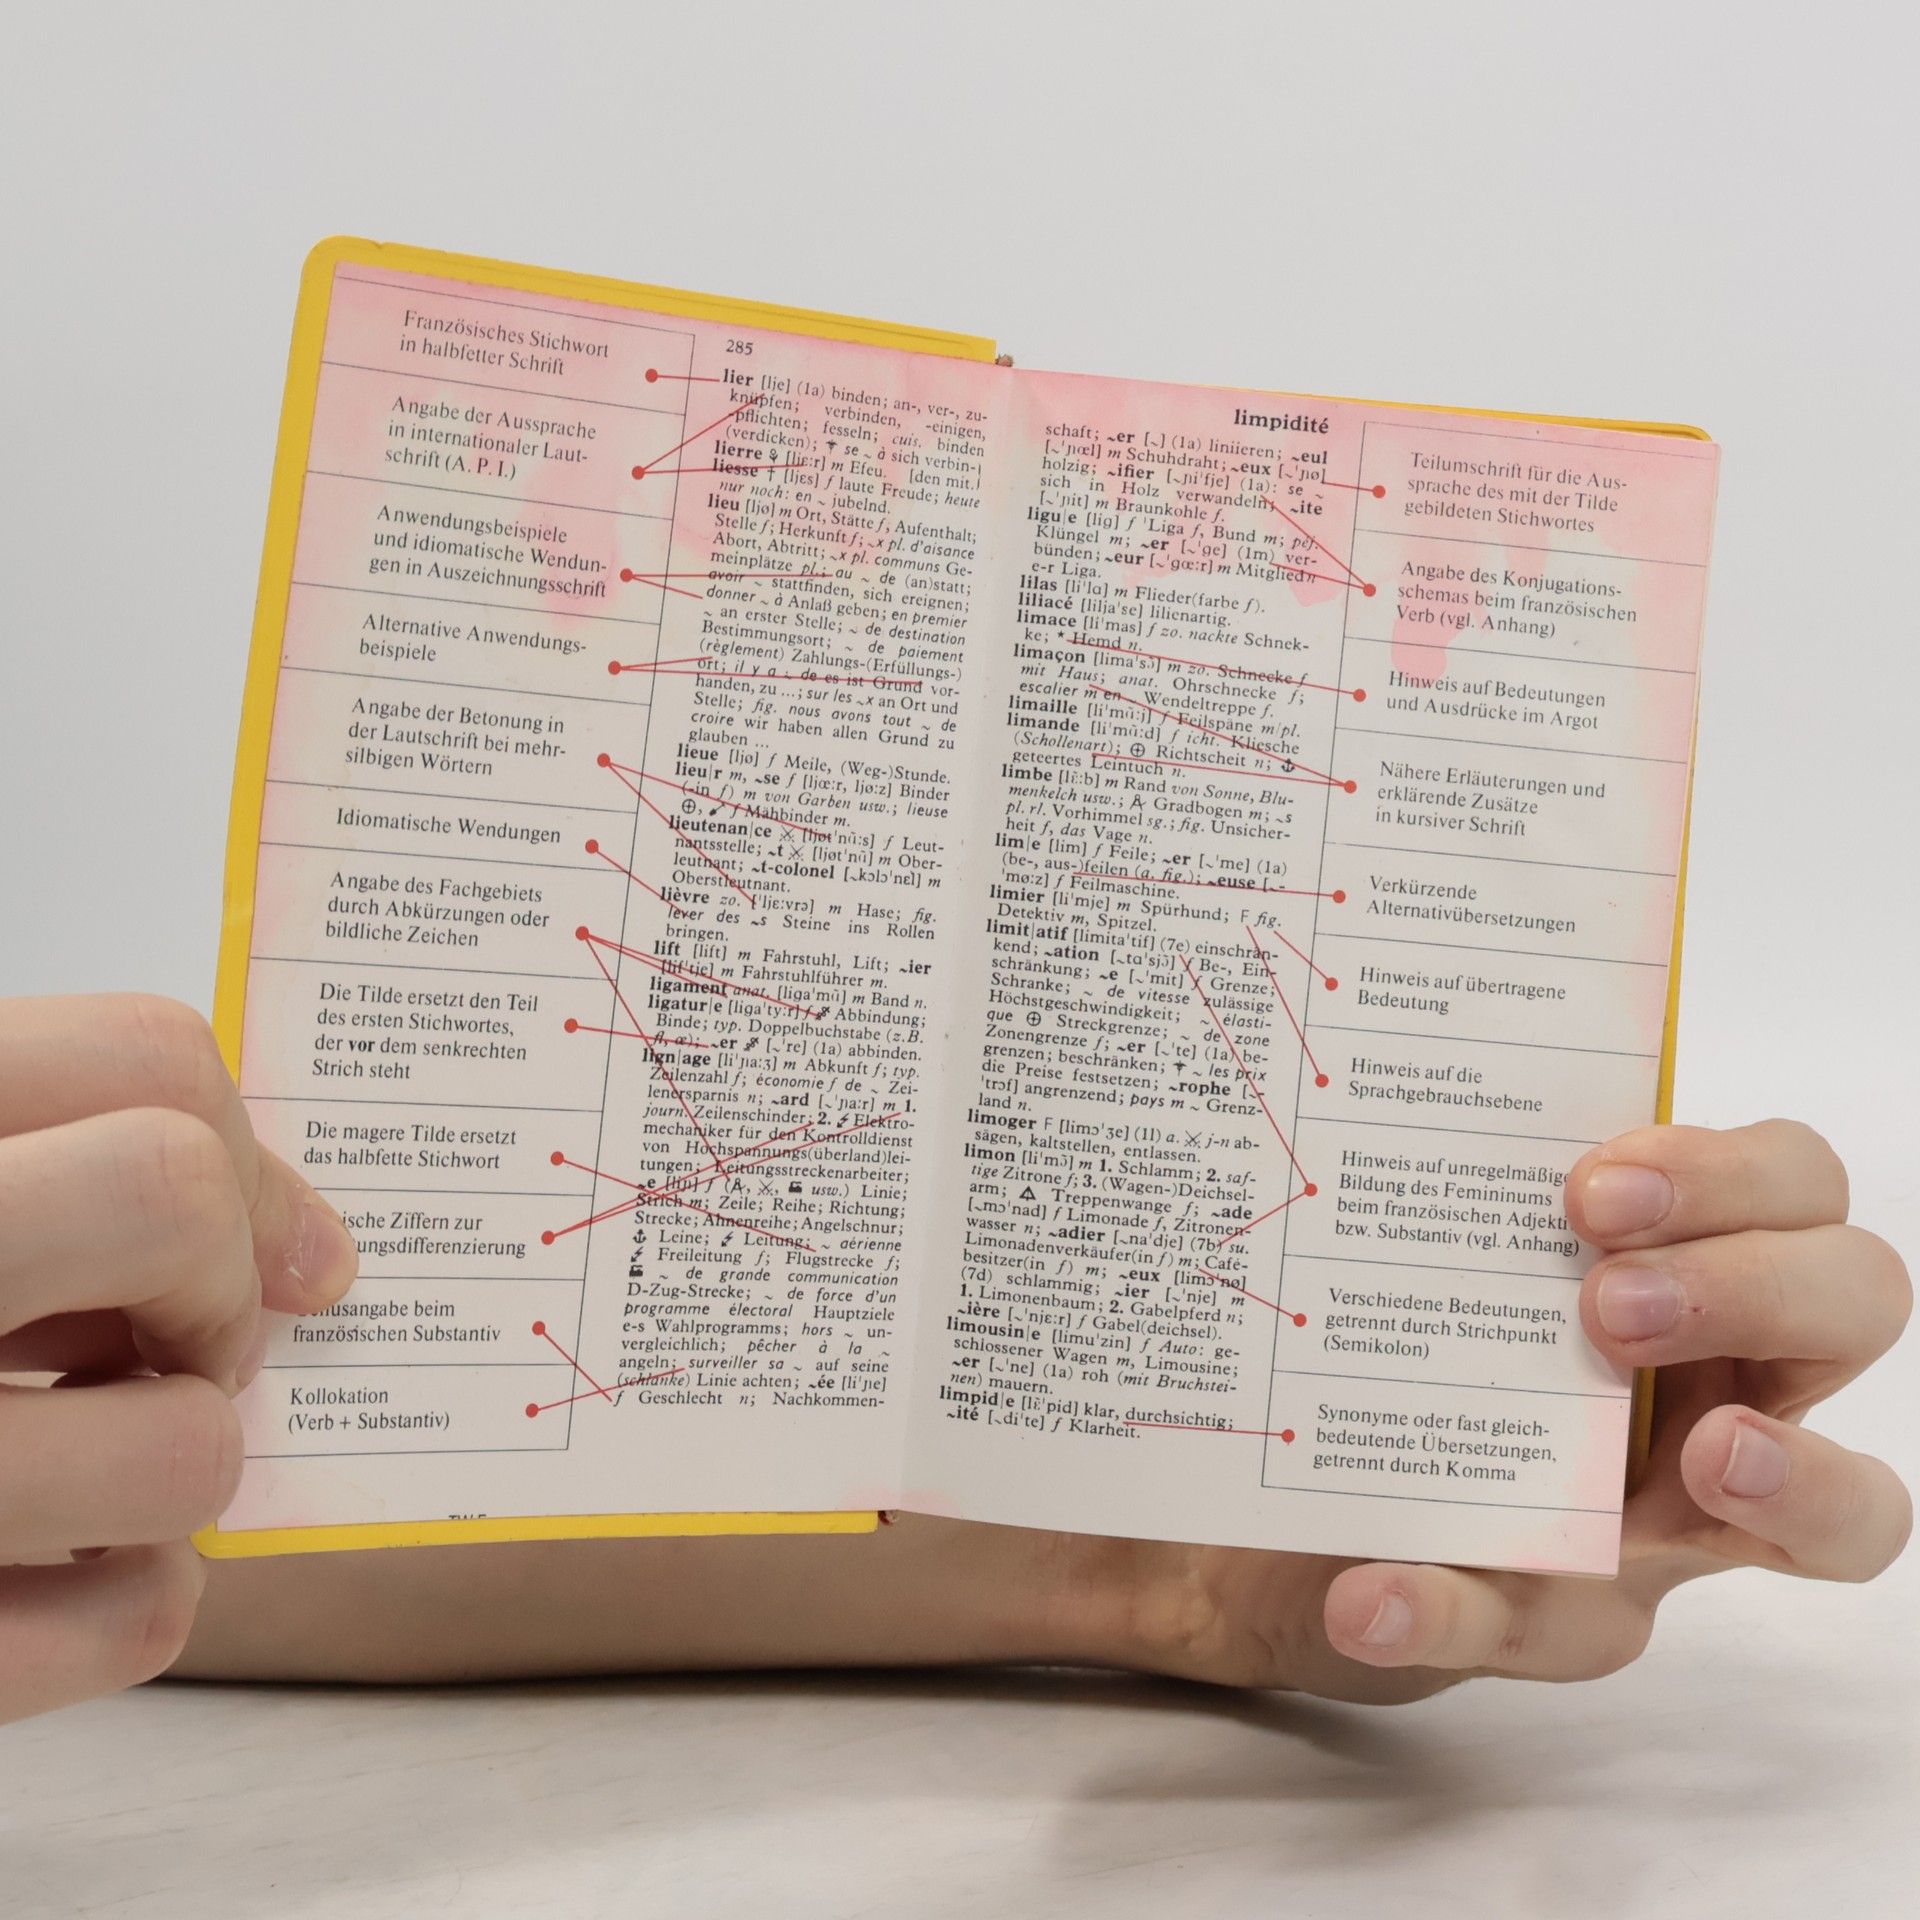 Französisches Stichwort
in halbfetter Schrift
Angabe der Aussprache
in internationaler Laut-
schrift (A. P. I.)
Anwendungsbeispiele
und idiomatische Wendun-
gen in Auszeichnungsschrift
Alternative Anwendungs-
beispiele
Angabe der Betonung in
der Lautschrift bei mehr-
silbigen Wörtern
Idiomatische Wendungen
Angabe des Fachgebiets
durch Abkürzungen oder
bildliche Zeichen
Die Tilde ersetzt den Teil
des ersten Stichwortes,
der vor dem senkrechten
Strich steht
Die magere Tilde ersetzt
das halbfette Stichwort
ische Ziffern zur
ungsdifferenzierung
nusangabe beim
französischen Substantiv
Kollokation
(Verb + Substantiv)
285
lier [lje] (1a) binden; an-, ver-, zu-
knüpfen; verbinden, -einigen,
-pflichten; fesseln; cuis. binden
(verdicken); se ~ à sich verbin-
lierre [ljɛ:r] m Efeu. [den mit.
liesse † [ljɛs] f laute Freude; heute
nur noch: en ~ jubelnd.
lieu [ljø] m Ort, Stätte f; Aufenthalt;
Stelle f; Herkunft f; ~x pl. d'aisance
Abort, Abtritt; ~x pl. communs Ge-
meinplätze pl.; au ~ de (an)statt;
avoir ~ stattfinden, sich ereignen;
donner ~ à Anlaß geben; en premier
~ an erster Stelle; ~ de destination
Bestimmungsort; ~ de paiement
(règlement) Zahlungs-(Erfüllungs-)
ort; il y a ~ de es ist Grund vor-
handen, zu ...; sur les ~x an Ort und
Stelle; fig. nous avons tout ~ de
croire wir haben allen Grund zu
glauben ...
lieue [ljø] f Meile, (Weg-)Stunde.
lieu|r m, ~se f [ljœ:r, ljø:z] Binder
(-in f) m von Garben usw.; lieuse
⊕, f Mähbinder m.
lieutenan|ce ⚔ [ljøt'nɑ̃:s] f Leut-
nantsstelle; ~t ⚔ [ljøt'nɑ̃] m Ober-
leutnant; ~t-colonel [~kɔlɔ'nɛl] m
Oberstleutnant.
lièvre zo. ['ljɛ:vrə] m Hase; fig.
lever des ~s Steine ins Rollen
bringen.
lift [lift] m Fahrstuhl, Lift; ~ier
[lif'tje] m Fahrstuhlführer m.
ligament anat. [liga'mɑ̃] m Band n.
ligatur|e [liga'ty:r] f Abbindung;
Binde; typ. Doppelbuchstabe (z.B.
fl, œ); ~er [~'re] (1a) abbinden.
lign|age [li'ɲa:ʒ] m Abkunft f; typ.
Zeilenzahl f; économie f de ~ Zei-
lenersparnis n; ~ard [~'ɲa:r] m 1.
journ. Zeilenschinder; 2. Elektro-
mechaniker für den Kontrolldienst
von Hochspannungs(überland)lei-
tungen; Leitungsstreckenarbeiter;
~e [liɲ] f (⚔, usw.) Linie;
Strich m; Zeile; Reihe; Richtung;
Strecke; Ahnenreihe; Angelschnur;
⚓ Leine; Leitung; ~ aérienne
Freileitung f; Flugstrecke f;
~ de grande communication
D-Zug-Strecke; ~ de force d'un
programme électoral Hauptziele
e-s Wahlprogramms; hors ~ un-
vergleichlich; pêcher à la ~
angeln; surveiller sa ~ auf seine
(schlanke) Linie achten; ~ée [li'ɲe]
f Geschlecht n; Nachkommen-
limpidité
schaft; ~er [~] (1a) liniieren; ~eul
[~'ɲœl] m Schuhdraht; ~eux [~'ɲø]
holzig; ~ifier [~ɲi'fje] (1a): se ~
sich in Holz verwandeln; ~ite
[~'ɲit] m Braunkohle f.
ligu|e [lig] f 'Liga f, Bund m; péj.
Klüngel m; ~er [~'ge] (1m) ver-
bünden; ~eur [~'gœ:r] m Mitglied n
e-r Liga.
lilas [li'lɑ] m Flieder(farbe f).
liliacé [lilja'se] lilienartig.
limace [li'mas] f zo. nackte Schnek-
ke; * Hemd n.
limaçon [lima'sɔ̃] m zo. Schnecke f
mit Haus; anat. Ohrschnecke f;
escalier m en ~ Wendeltreppe f.
limaille [li'mɑ:j] f Feilspäne m/pl.
limande [li'mɑ̃:d] f icht. Kliesche
(Schollenart); ⊕ Richtscheit n; ⚓
geteertes Leintuch n.
limbe [lɛ̃:b] m Rand von Sonne, Blu-
menkelch usw.; Gradbogen m; ~s
pl. rl. Vorhimmel sg.; fig. Unsicher-
heit f, das Vage n.
lim|e [lim] f Feile; ~er [~'me] (1a)
(be-, aus-)feilen (a. fig.); ~euse [~-
'mø:z] f Feilmaschine.
limier [li'mje] m Spürhund; F fig.
Detektiv m, Spitzel.
limit|atif [limita'tif] (7e) einschrän-
kend; ~ation [~tɑ'sjɔ̃] f Be-, Ein-
schränkung; ~e [~'mit] f Grenze;
Schranke; ~ de vitesse zulässige
Höchstgeschwindigkeit; ~ élasti-
que ⊕ Streckgrenze; ~ de zone
Zonengrenze f; ~er [~'te] (1a) be-
grenzen; beschränken; ~ les prix
die Preise festsetzen; ~rophe [~-
'trɔf] angrenzend; pays m ~ Grenz-
land n.
limoger F [limɔ'ʒe] (1l) a. ⚔ j-n ab-
sägen, kaltstellen, entlassen.
limon [li'mɔ̃] m 1. Schlamm; 2. saf-
tige Zitrone f; 3. (Wagen-)Deichsel-
arm; Treppenwange f; ~ade
[~mɔ'nad] f Limonade f, Zitronen-
wasser n; ~adier [~na'dje] (7b) su.
Limonadenverkäufer(in f) m; Café-
besitzer(in f) m; ~eux [limɔ'nø]
(7d) schlammig; ~ier [~'nje] m
1. Limonenbaum; 2. Gabelpferd n;
~ière [~'njɛ:r] f Gabel(deichsel).
limousin|e [limu'zin] f Auto: ge-
schlossener Wagen m, Limousine;
~er [~'ne] (1a) roh (mit Bruchstei-
nen) mauern.
limpid|e [lɛ̃'pid] klar, durchsichtig;
~ité [~di'te] f Klarheit.
Teilumschrift für die Aus-
sprache des mit der Tilde
gebildeten Stichwortes
Angabe des Konjugations-
schemas beim französischen
Verb (vgl. Anhang)
Hinweis auf Bedeutungen
und Ausdrücke im Argot
Nähere Erläuterungen und
erklärende Zusätze
in kursiver Schrift
Verkürzende
Alternativübersetzungen
Hinweis auf übertragene
Bedeutung
Hinweis auf die
Sprachgebrauchsebene
Hinweis auf unregelmäßige
Bildung des Femininums
beim französischen Adjekti
bzw. Substantiv (vgl. Anhang)
Verschiedene Bedeutungen,
getrennt durch Strichpunkt
(Semikolon)
Synonyme oder fast gleich-
bedeutende Übersetzungen,
getrennt durch Komma